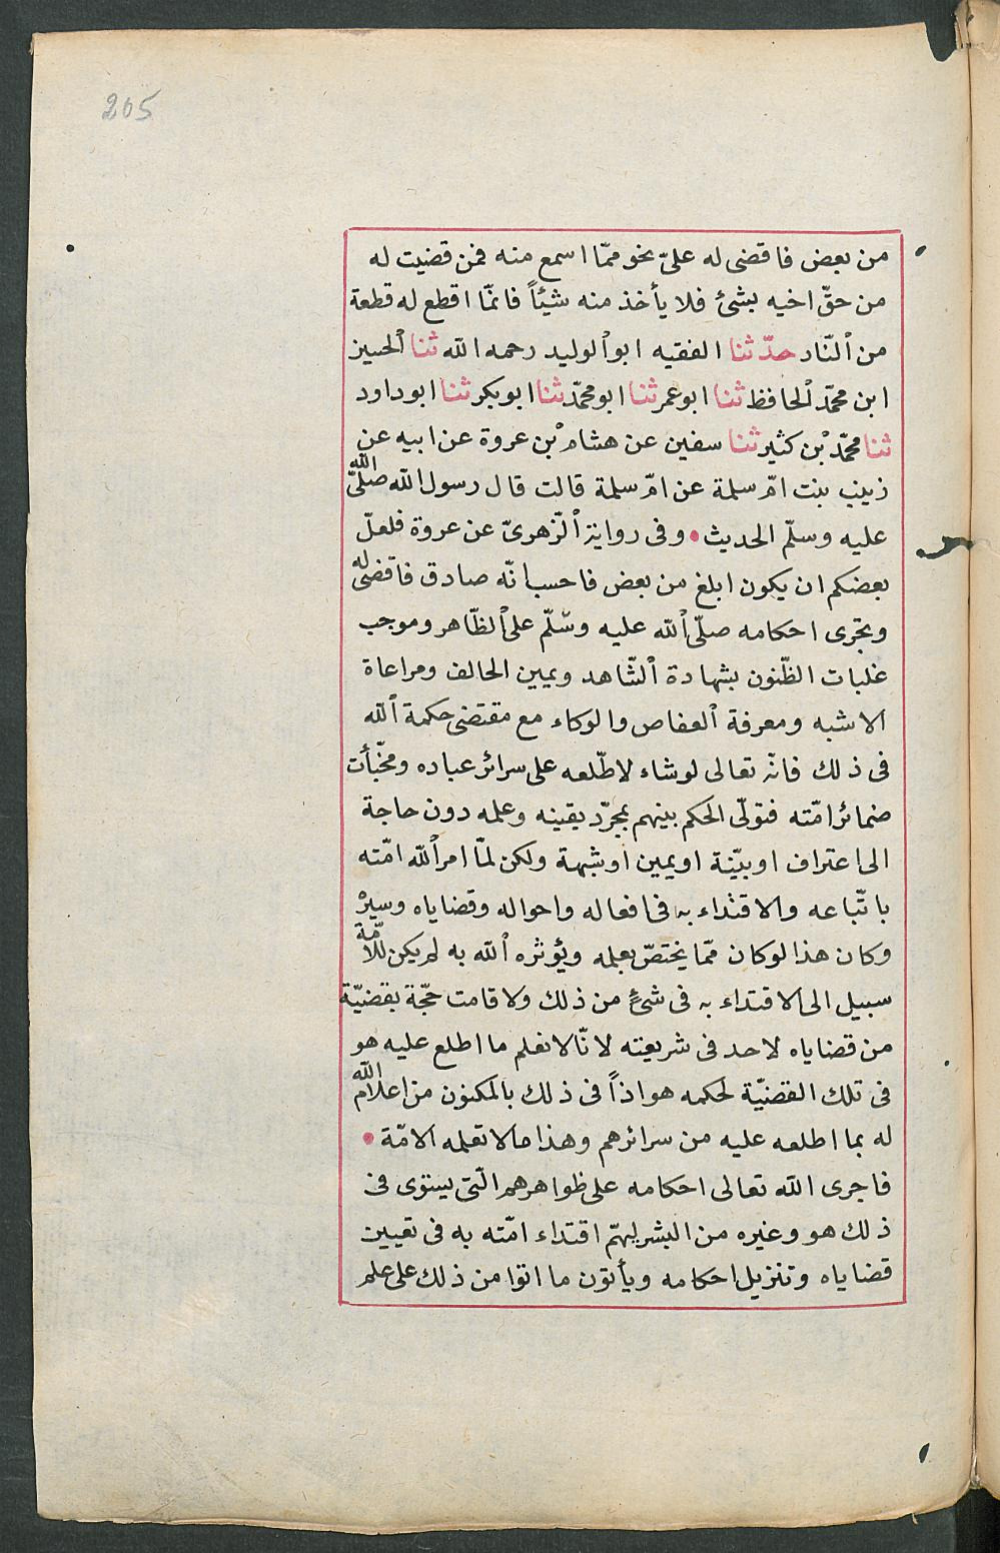 205
من بعض فاقضى له على نحو ممّا اسمع منه فمن قضيت له
من حقّ اخيه بشئ فلا يأخذ منه شيئاً فانمّا اقطع له قطعة
من ٱلنّار حدّثنا الفقيه ابو ٱلوليد رحمه الله ثنا ٱلحسين
ابن محمّد ٱلحافظ ثنا ابو عمر ثنا ابو محمّد ثنا ابو بكر ثنا ابو داود
ثنا محمّد بْن كثير ثنا سفين عن هشام بْن عروة عن ابيه عن
زينب بنت امّ سلمة عن امّ سلمة قالت قال رسول الله صلىّ الله
عليه وسلّم الحديث • وفى رواية ٱلزّهرىّ عن عروة فلعلّ
بعضكم ان يكون ابلغ من بعض فاحسب انّه صادق فاقضى له
وتجرى احكامه صلّى ٱلله عليه وسّلّم على ٱلظّاهر وموجب
غلبات الظّنون بشهادة ٱلشّاهد ويمين الحالف ومراعاة
الاشبه ومعرفة ٱلعفاص والوكاء مع مقتضى حكمة ٱلله
فى ذلك فانّه تعالى لو شاء لاطّلعه على سرائر عباده ومخّبأت
ضمائر امّته فتولّى الحكم بينهم بمجرّد يقينه وعلمه دون حاجة
الى اعتراف او بيّنة او يمين او شبهة ولكن لمّا امر ٱلله امّته
باتّباعه والاقتداء به فى افعاله واحواله وقضاياه وسيره
وكان هذا لو كان ممّا يختصّ بعلمه ويؤثره ٱلله به لم يكن للاّمّة
سبيل الى الاقتداء به فى شئ من ذلك ولا قامت حجّة بقضيّة
من قضاياه لاحد فى شريعته لانّا لا نعلم ما اطلع عليه هو
فى تلك القضيّة لحكمه هو اذاً فى ذلك بالمكنون من اعلام الله
له بما اطلعه عليه من سرائرهم وهذا ما لا تعلمه الامّة •
فاجرى الله تعالى احكامه على ظواهرهم الّتى يستوى فى
ذلك هو وغيره من البشر ليتمّ اقتداء امّته به فى تعيين
قضاياه وتنزيل احكامه ويأتون ما اتوا من ذلك على علم